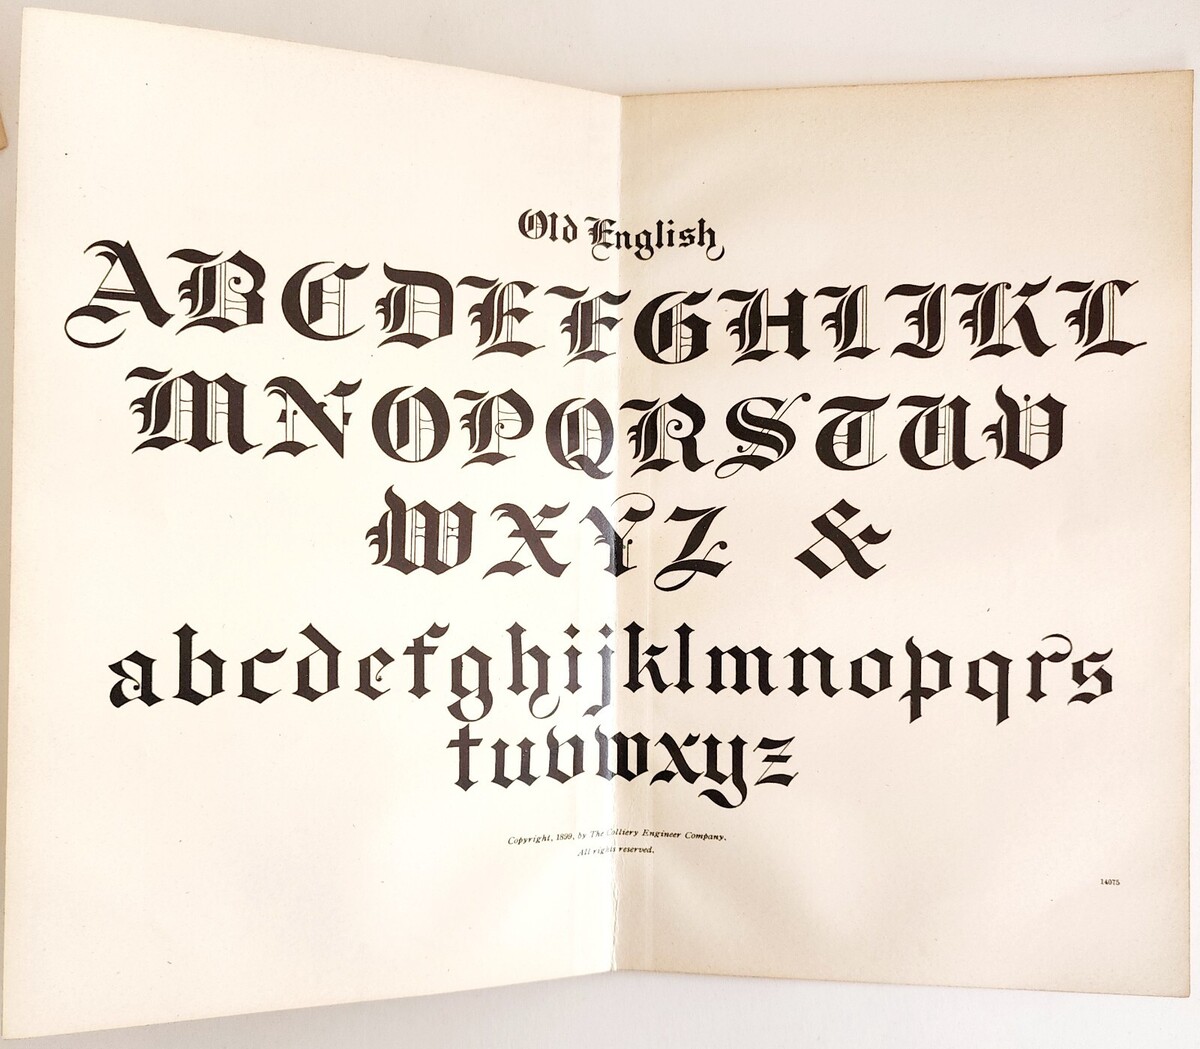 Old English
ABCDEFGHIJKL
MNOPQRSTUV
WXYZ &
abcdefghijklmnopqrs
tuvwxyz
Copyright, 1899, by The Colliery Engineer Company.
All rights reserved.
14075